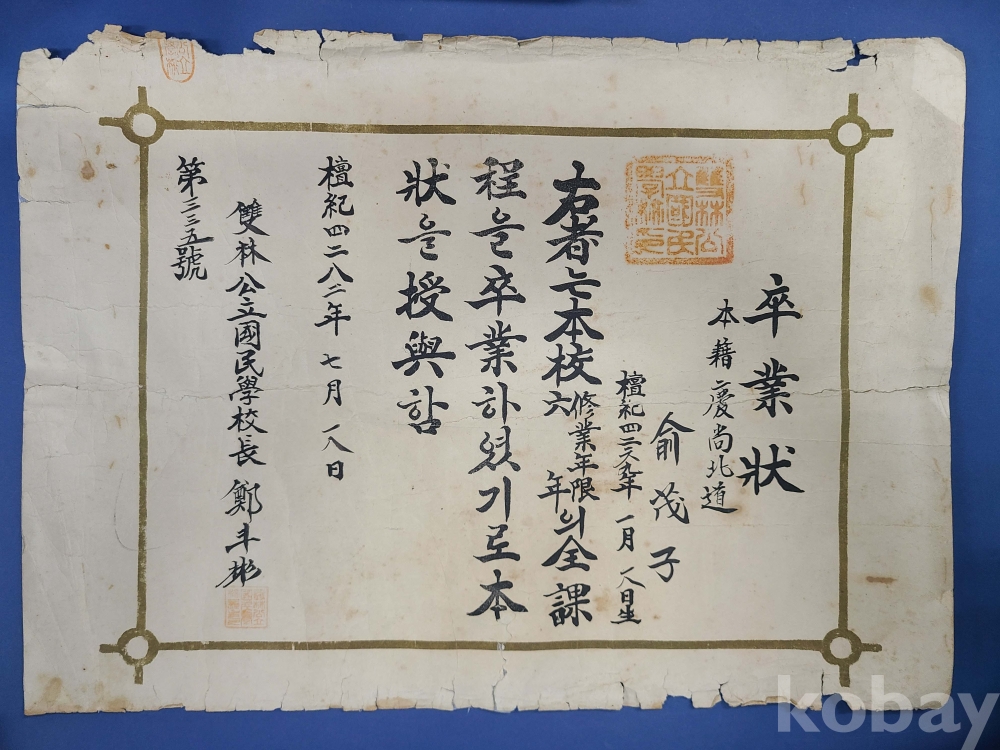 卒業狀
本籍 慶尚北道
俞茂子
檀紀四二六九年 一月 一八日生
右者는本校修業年限六年의全課
程을卒業하였기로本
狀을授與함
檀紀四二八二年 七月 一八日
雙林公立國民學校長 鄭斗彬
第三三五號
雙林公立國民學校印
kobay